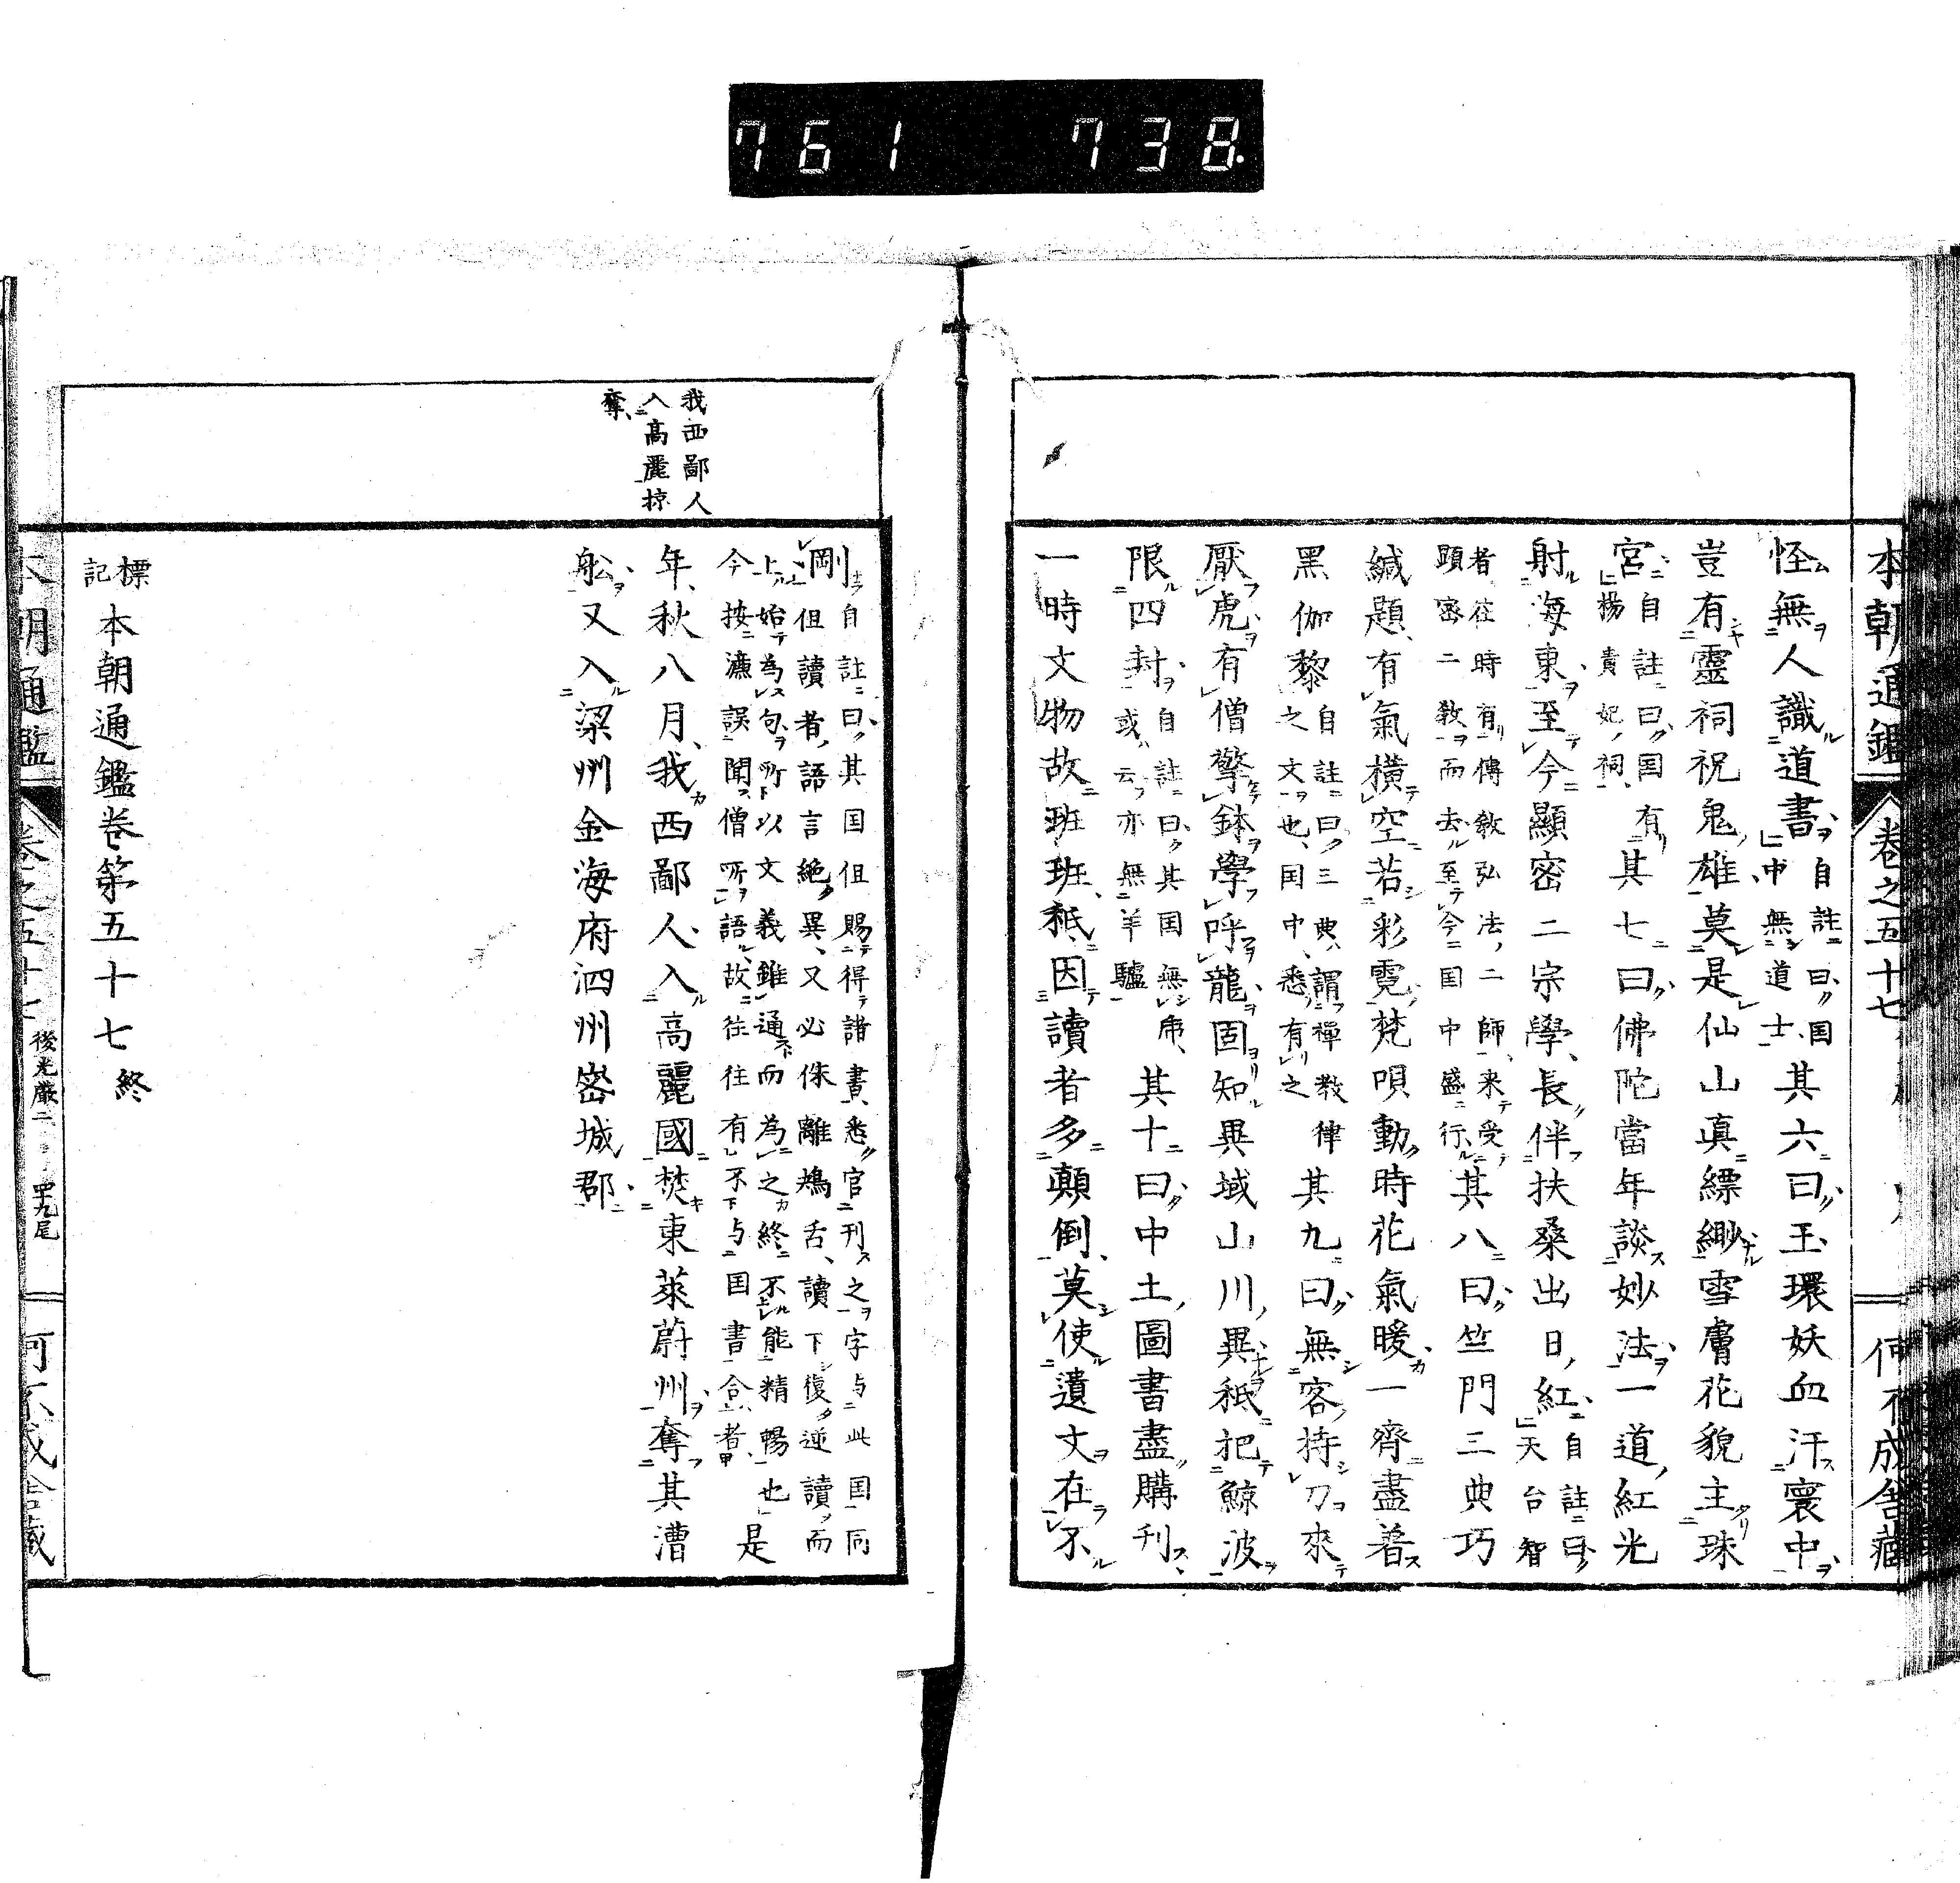 761 738
本朝通鑑 卷之五十七
何不成舍藏
怪無人識道書自註曰国中無道士其六曰玉環妖血汗寰中
豈有靈祠祝鬼雄莫是仙山眞縹緲雪膚花貌主珠
宮自註曰国有楊貴妃祠其七曰佛陀當年談妙法一道紅光
射海東至今顯密二宗學長伴扶桑出日紅自註曰天台智
者往時有傳敎弘法二師来受顕宻二敎而去至今国中盛行其八曰竺門三典巧
緘題有氣橫空若彩霓梵唄動時花氣暖一齊盡著
黑伽黎自註曰三典謂禪教律之文也国中悉有之其九曰無客持刀來
厭虎有僧擎鉢學呼龍固知異域山川異秪把鯨波
限四封自註曰其国無虎或云亦無羊驢其十曰中土圖書盡購刊
一時文物故班班秪因讀者多顛倒莫使遺文在不
我西鄙人
入高麗掠
奪
剛自註曰其国但賜得諸書悉官刊之字与此国同但讀者語言絶異又必侏離鴂舌讀下復逆讀而
上始為句所以文義雖通而為之終不能精暢也今按濂誤聞僧所語故往往有不与国書合者是
年秋八月我西鄙人入高麗國焚東萊蔚州奪其漕
舩又入梁州金海府泗州密城郡
標記 本朝通鑑卷第五十七終
本朝通鑑 卷之五十七 後光厳二 四十九尾
何不成舍藏